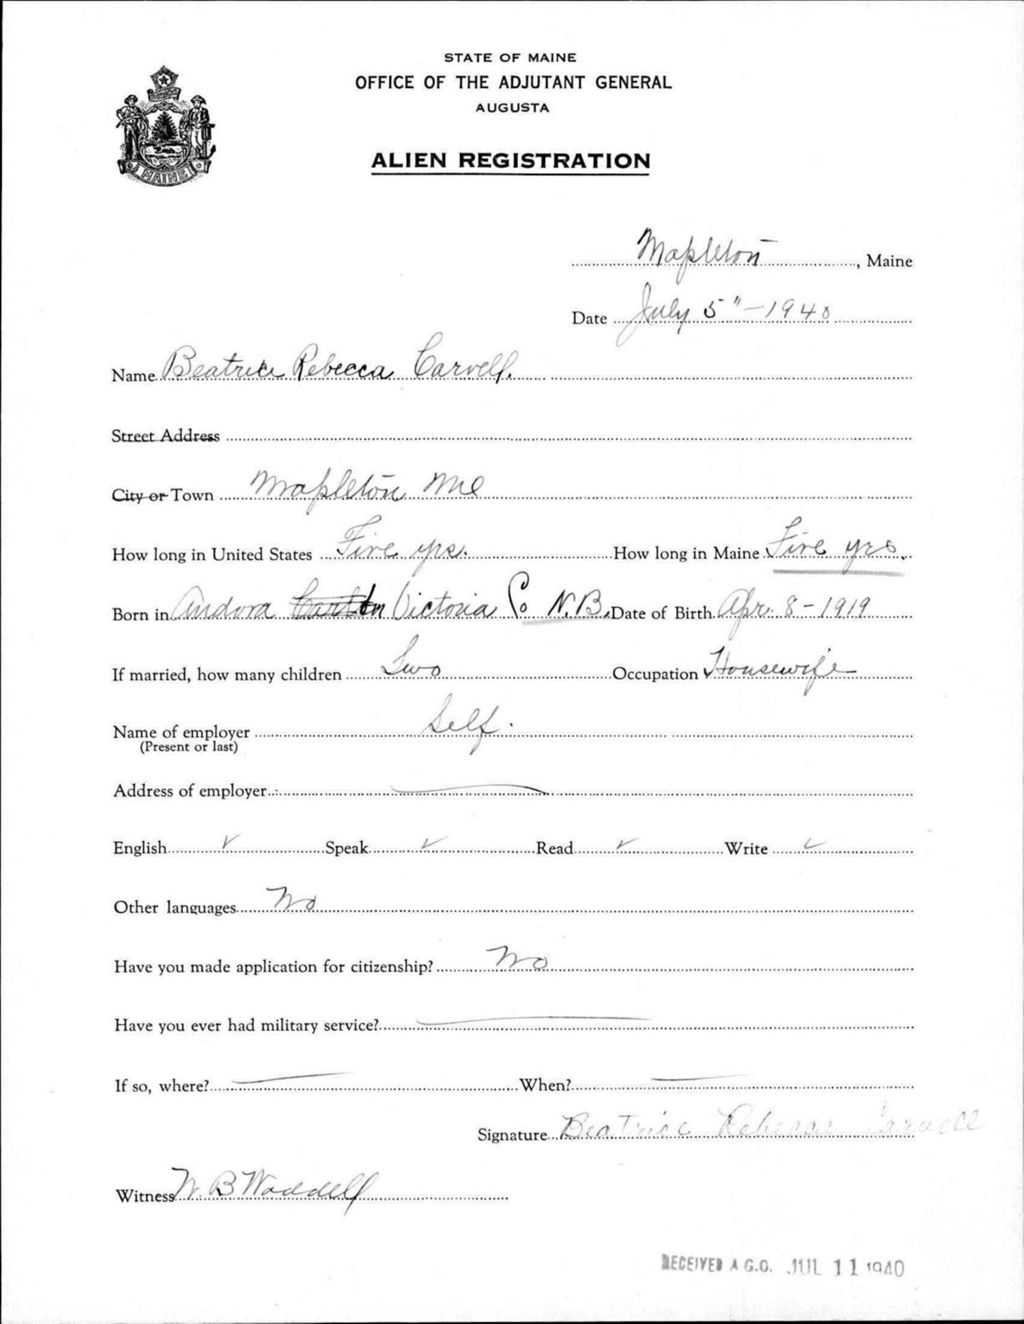 STATE OF MAINE
OFFICE OF THE ADJUTANT GENERAL
AUGUSTA
MAINE
ALIEN REGISTRATION
Mapleton, Maine
Date July 5" - 1940
Name Beatrice Rebecca Carvell.
Street Address
City or Town Mapleton Me
How long in United States Five yrs. How long in Maine Five yrs.
Born in Andora Carlton Victoria Co N.B. Date of Birth Apr. 8 - 1919
If married, how many children Two Occupation Housewife
Name of employer Self.
(Present or last)
Address of employer
English ✓ Speak ✓ Read ✓ Write ✓
Other languages No
Have you made application for citizenship? No
Have you ever had military service?
If so, where? When?
Signature Beatrice Rebecca Carvell
Witness W. B Waddell
RECEIVED A.G.O. JUL 11 1940